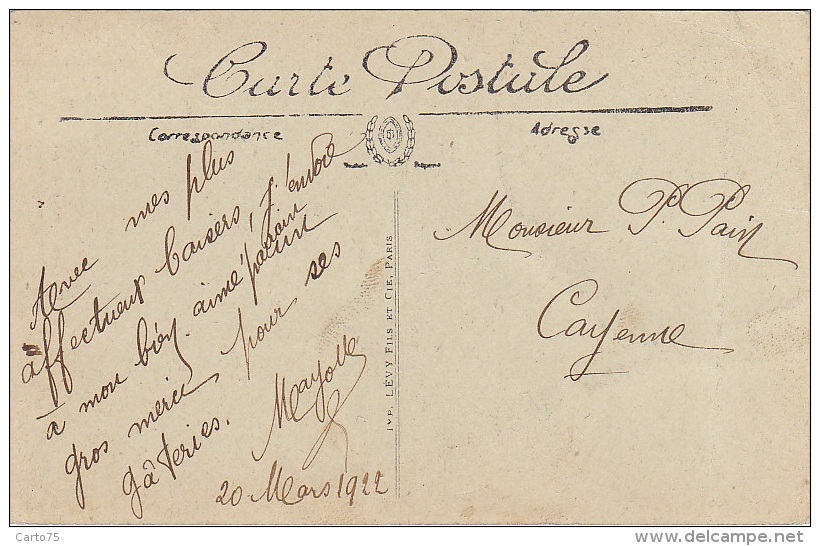 Carte Postale
Correspondance
Adresse
Avec mes plus
affectueux baisers, j'envoie
à mon bien aimé parrain
gros mercis pour ses
gâteries.
20 Mars 1922
IMP. LÉVY FILS ET CIE, PARIS
Monsieur P. Pain
Cayenne
Carto75
www.delcampe.net